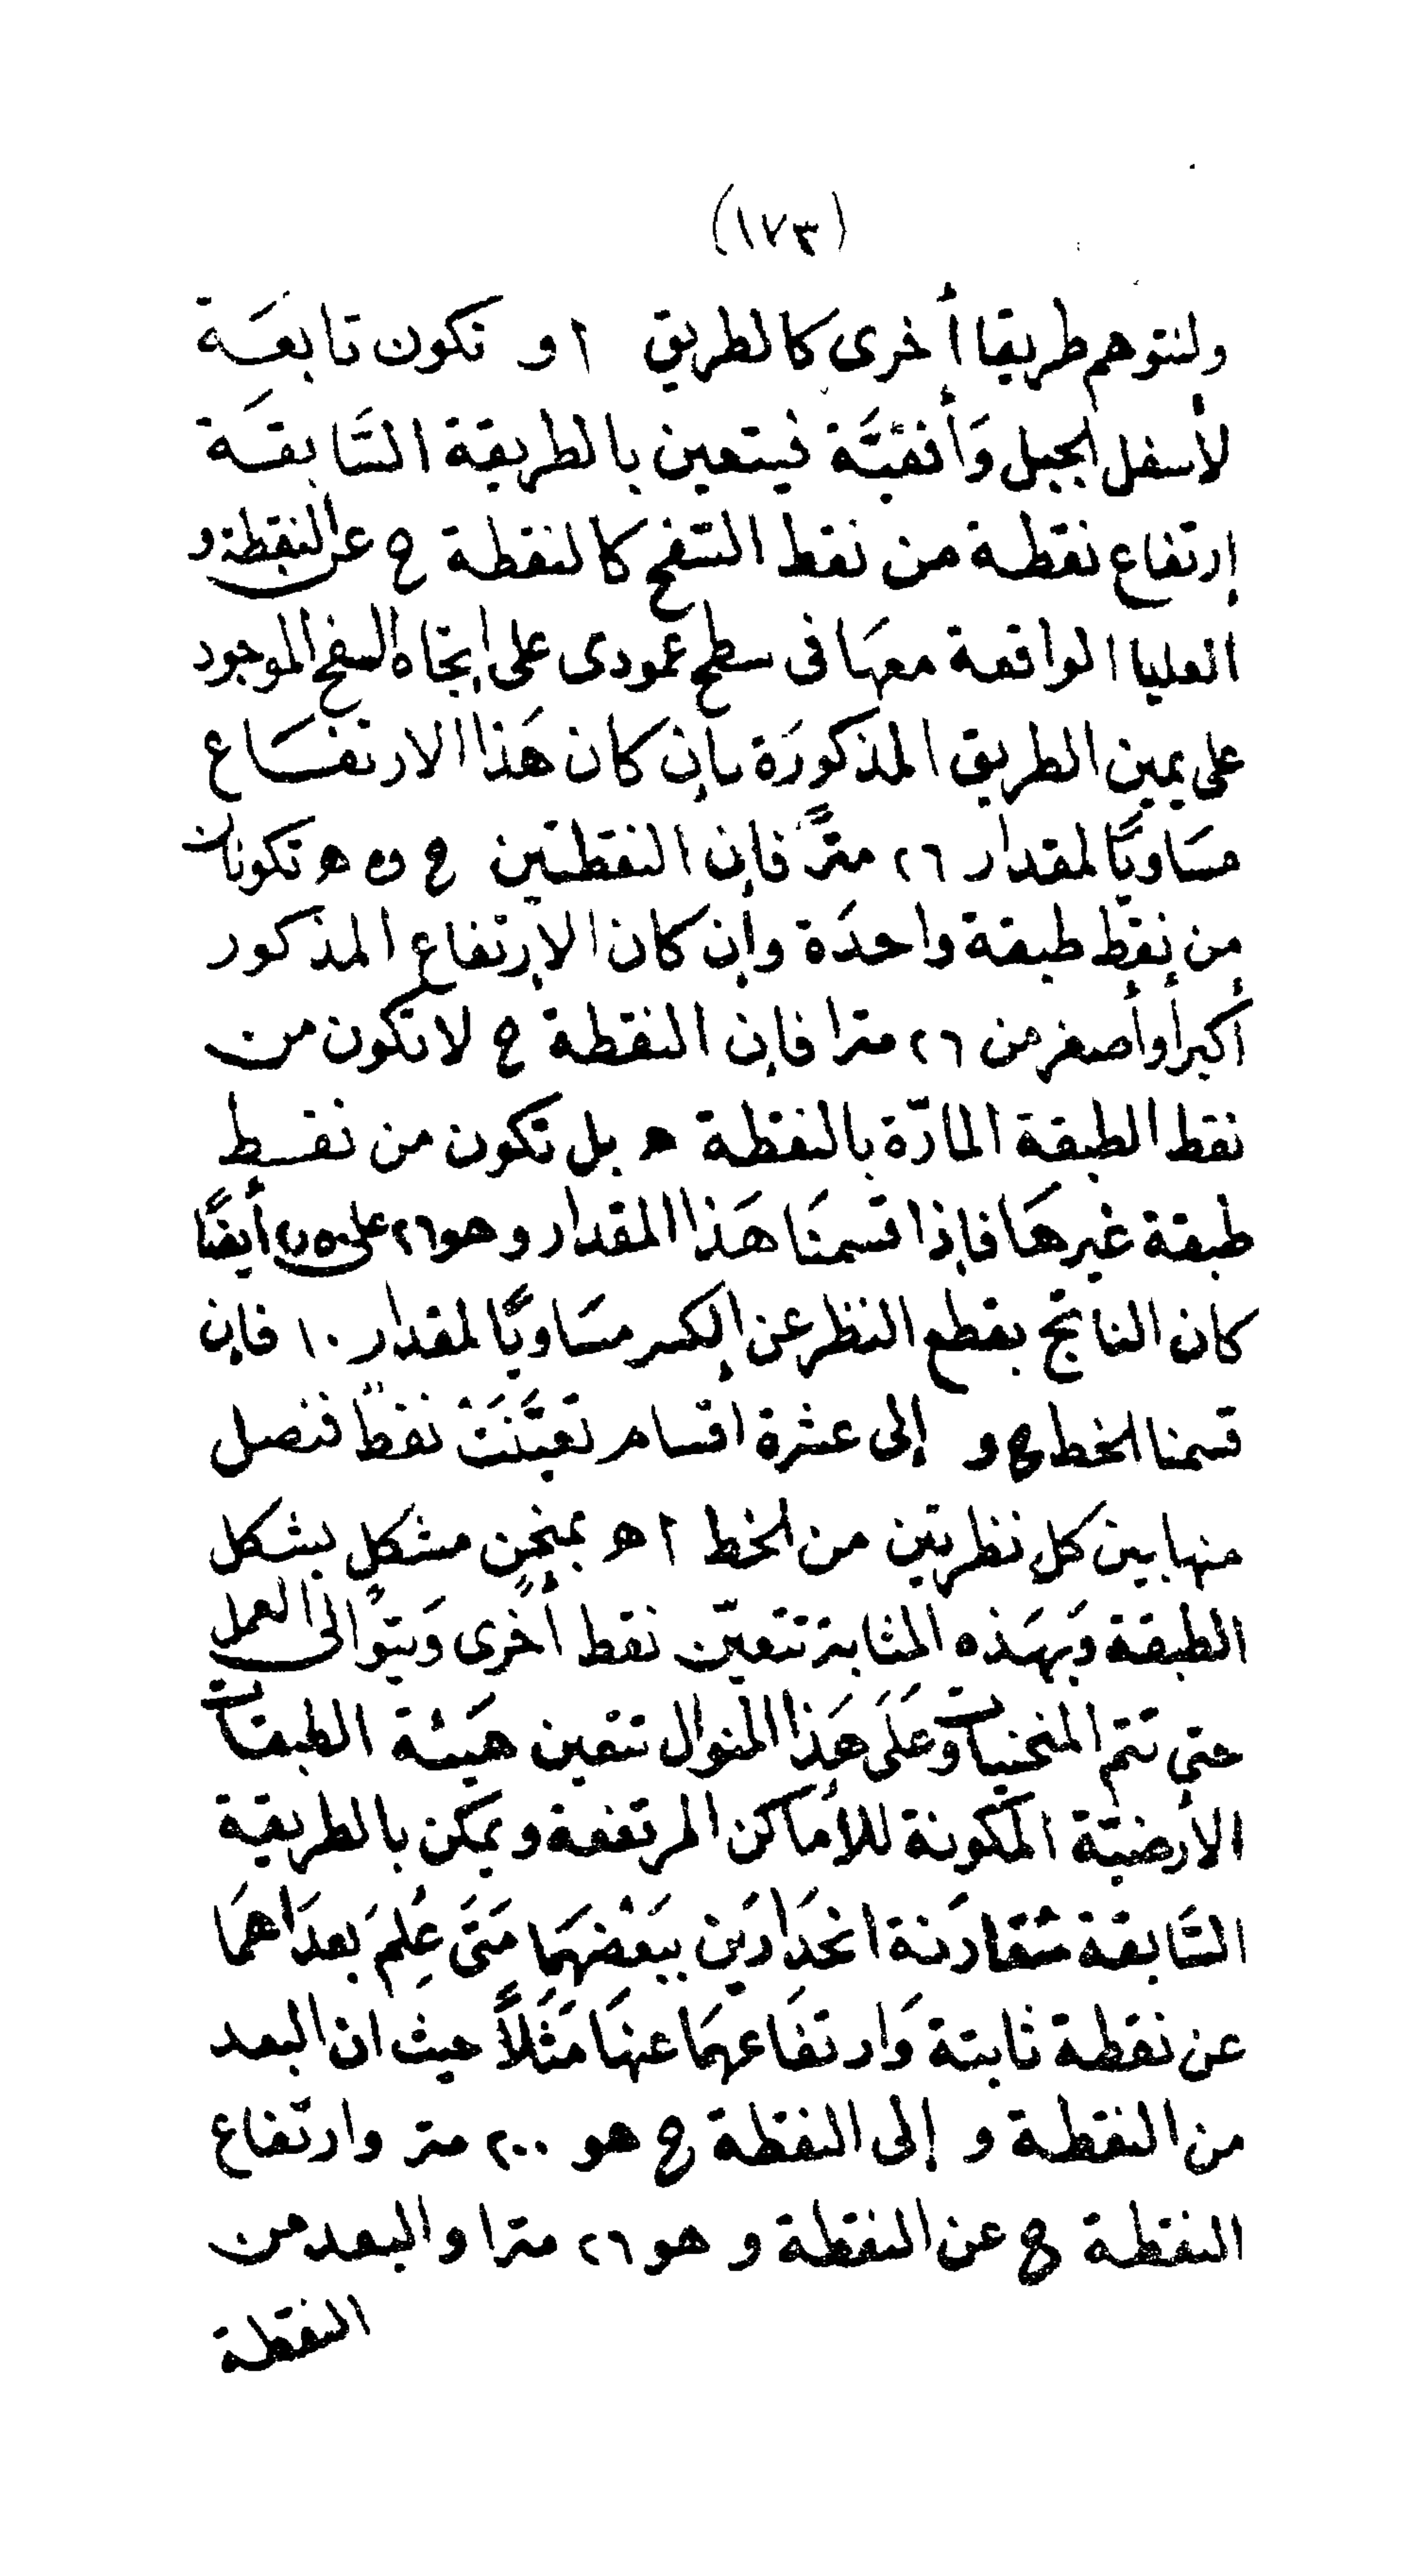 (١٧٣)
ولنتوهم طريقا أخرى كالطريق ا و تكون تابعَة
لأسفل الجبل وَأفقيَّة فيتعين بالطريقة السَّابقَة
إرتفاع نقطة من نقط السّفح كالنقطة ح عن النقطة و
العليا الواقعة معهَا فى سطح عمودى على إتجاه السفح الموجود
على يمين الطريق المذكورَة بإن كان هَذا الارتفَاع
مسَاويًا لمقدار ٢٦ مترًا فإن النقطتين ح و ه تكونان
من نقط طبقة واحدَة وإن كان الإرتفاع المذكور
أكبر أو أصغر من ٢٦ مترا فإن النقطة ح لا تكون من
نقط الطبقة المارّة بالنقطة ه بل تكون من نقط
طبقة غيرهَا فإذا قسمنَا هَذا المقدار وهو ٢٦ على ٢٫٥ أيضًا
كان الناتج بقطع النظر عن الكسر مسَاويًا لمقدار ١٠ فإن
قسمنا الخط ح و إلى عشرة اقسام تعيَّنَتْ نقطٌ فنصل
منها بين كل نظريتين من الخط ا ه بمنحنٍ مشكلٍ بشكل
الطبقة وَبهَذه المثابة تتعيّن نقط أخرى وَيتوَالى العمل
حتى تتم المنحنيات وَعَلَى هَذا المنوال تتعين هَيئة الطبقات
الأرضيّة المكونة للأماكن المرتفعة ويمكن بالطريقة
السَّابقة مُقارَنة انحَدارَين ببَعْضهَما مَتَى عُلِمَ بعدَاهمَا
عن نقطة ثابتة وَارتفَاعهمَا عنهَا مَثَلاً حيث ان البعد
من النقطة و إلى النقطة ح هو ٢٠٠ متر وارتفاع
النقطة ح عن النقطة و هو ٢٦ مترا والبعد من
النقطة